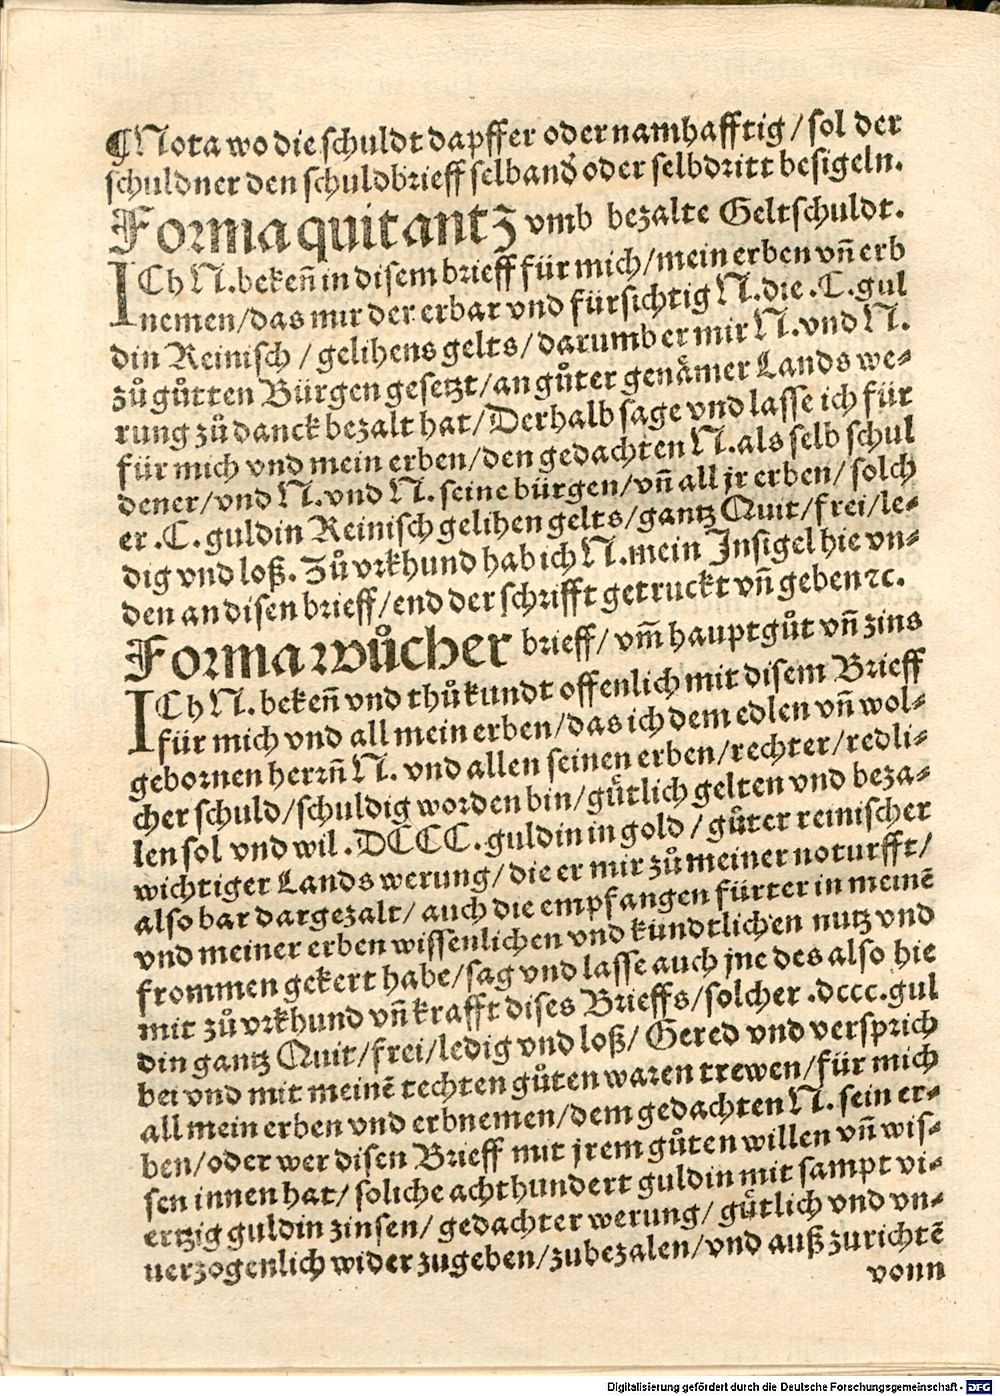 ¶Nota wo die schuldt dapffer oder namhafftig / sol der
schuldner den schuldbrieff selband oder selbdritt besigeln.
Forma quitantz vmb bezalte Geltschuldt.
ICh N. bekeñ in disem brieff für mich / mein erben vñ erb
nemen / das mir der erbar vnd fürsichtig N. die .C. gul
din Reinisch / gelihens gelts / darumb er mir N. vnd N.
zů gůtten Bürgen gesetzt / an gůter genåmer Lands we⸗
rung zů danck bezalt hat / Derhalb sage vnd lasse ich für
für mich vnd mein erben / den gedachten N. als selb schul
dener / vnd N. vnd N. seine bürgen / vñ all jr erben / solch
er .C. guldin Reinisch gelihen gelts / gantz Quit / frei / le⸗
dig vnd loß. Zů vrkhund hab ich N. mein Insigel hie vn⸗
den an disen brieff / end der schrifft getruckt vñ geben ꝛc.
Forma wůcher brieff / vm̃ hauptgůt vñ zins
ICh N. bekeñ vnd thů kundt offenlich mit disem Brieff
für mich vnd all mein erben / das ich dem edlen vñ wol⸗
gebornen herrñ N. vnd allen seinen erben / rechter / redli⸗
cher schuld / schuldig worden bin / gůtlich gelten vnd beza⸗
len sol vnd wil .DCCC. guldin in gold / gůter reinischer
wichtiger Lands werung / die er mir zů meiner noturfft /
also bar dargezalt / auch die empfangen fürter in meinẽ
vnd meiner erben wissenlichen vnd kundtlichen nutz vnd
frommen gekert habe / sag vnd lasse auch jne des also hie
mit zů vrkhund vñ krafft dises Brieffs / solcher .dccc. gul
din gantz Quit / frei / ledig vnd loß / Gered vnd versprich
bei vnd mit meinẽ rechten gůten waren trewen / für mich
all mein erben vnd erbnemen / dem gedachten N. sein er⸗
ben / oder wer disen Brieff mit jrem gůten willen vñ wis⸗
sen innen hat / soliche achthundert guldin mit sampt vi⸗
ertzig guldin zinsen / gedachter werung / gůtlich vnd vn⸗
uerzogenlich wider zugeben / zubezalen / vnd auß zurichtẽ
vonn
Digitalisierung gefördert durch die Deutsche Forschungsgemeinschaft - DFG